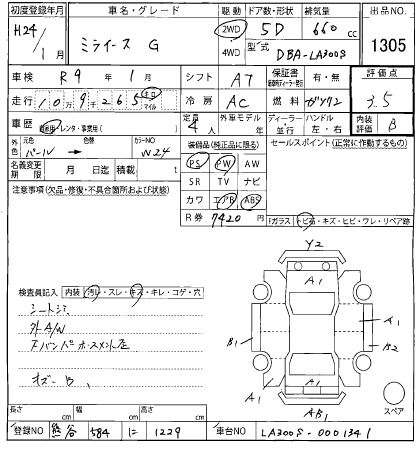 初度登録年月 車名・グレード 駆動 ドア数・形状 排気量 出品NO
H24/1月 ミライース G 2WD 5D 660cc 1305
4WD 型式 DBA-LA300S
車検 R9年1月 シフト AT 保証書 有・無 評価点
走行 10万9千265 キロ マイル 冷房 AC 燃料 ガソリン 3.5
車歴 自家用 レンタ・事業用( ) 定員 4人 外車モデル ディーラー・並行 ハンドル 左・右 内装評価 B
外色 元色 パール 色替 カラーNO W24
装備品(純正品に限る) セールスポイント(正常に作動するもの)
名義変更期限 月 日迄 積載 t
PS PW AW
SR TV ナビ
カワ エアB ABS
R券 7420円
注意事項(欠品・修復・不具合箇所および状態)
Fガラス トビ石・キズ・ヒビ・ワレ・リペア跡
検査員記入 内装 汚レ・スレ・キズ・キレ・コゲ・穴
シートシミ
外A/W
オズ-B
Y2
A1
A1
B1
B2
A1
A1
A1
AB1
スペア
長さ cm 幅 cm 高さ cm
登録NO 熊谷 584 に 1229 車台NO LA300S-0001341